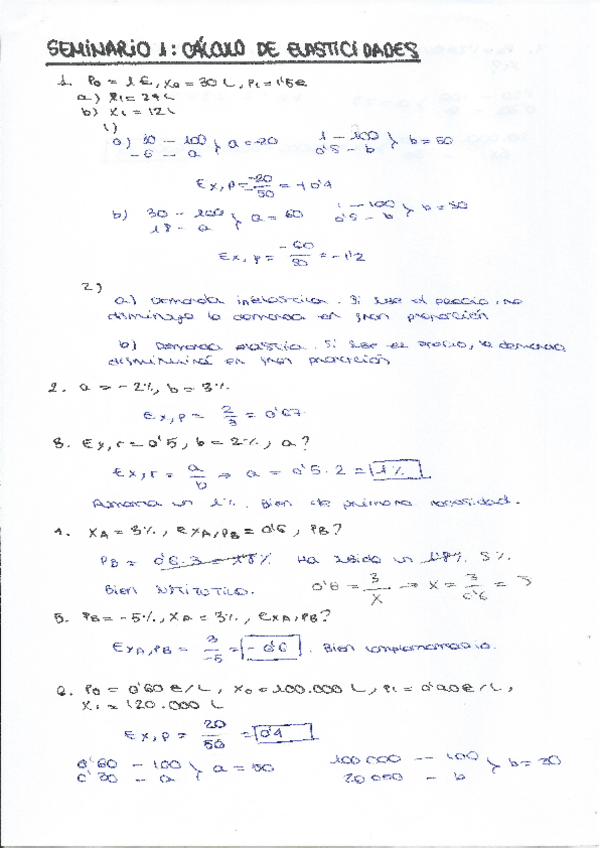 SEMINARIO 1: CÁLCULO DE ELASTICIDADES
1. P0 = 1€, X0 = 30 L, P1 = 1'5€
a) X1 = 24L
b) X1 = 12L
1)
a) 30 - 100 } a = -20   1 - 100 } b = 50
-6 - a   0'5 - b
Ex,p = -20/50 = -0'4
b) 30 - 100 } a = 60   1 - 100 } b = 50
18 - a   0'5 - b
Ex,p = -60/50 = -1'2
2)
a) Demanda inelástica. Si sube el precio, no
disminuye la demanda en gran proporción
b) Demanda elástica. Si sube el precio, la demanda
disminuirá en gran proporción
2. a = -2%, b = 3%
Ex,p = 2/3 = 0'67
3. Ex,r = 0'5, b = 2%, a?
Ex,r = a/b → a = 0'5 · 2 = 1%
Aumenta un 1%. Bien de primera necesidad.
4. XA = 3%, EXA,PB = 0'6, PB?
PB = 0'6·3 = 1'8% Ha subido un 1'8% 5%
Bien sustitutivo. 0'6 = 3/X → X = 3/0'6 = 5
5. PB = -5%, XA = 3%, EXA,PB?
EXA,PB = 3/-5 = -0'6. Bien complementario.
6. P0 = 0'60 €/L, X0 = 100.000 L, P1 = 0'90 €/L,
X1 = 120.000 L
Ex,p = 20/50 = 0'4
0'60 - 100 } a = 50   100 000 - 100 } b = 20
0'30 - a   20 000 - b